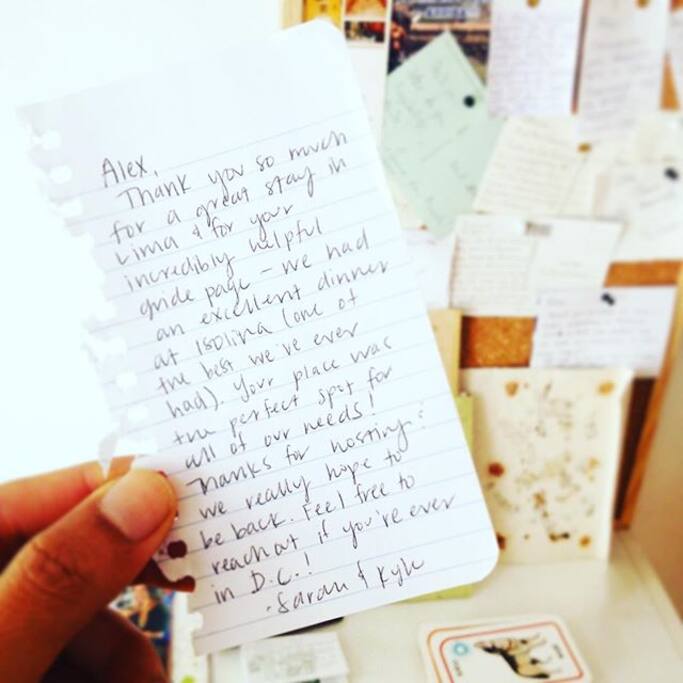 Alex,
Thank you so much
for a great stay in
Lima & for your
incredibly helpful
guide page - we had
an excellent dinner
at Isolina (one of
the best we've ever
had). Your place was
the perfect spot for
all of our needs!
Thanks for hosting &
we really hope to
be back. Feel free to
reach out if you're ever
in D.C.!
-Sarah & Kyle